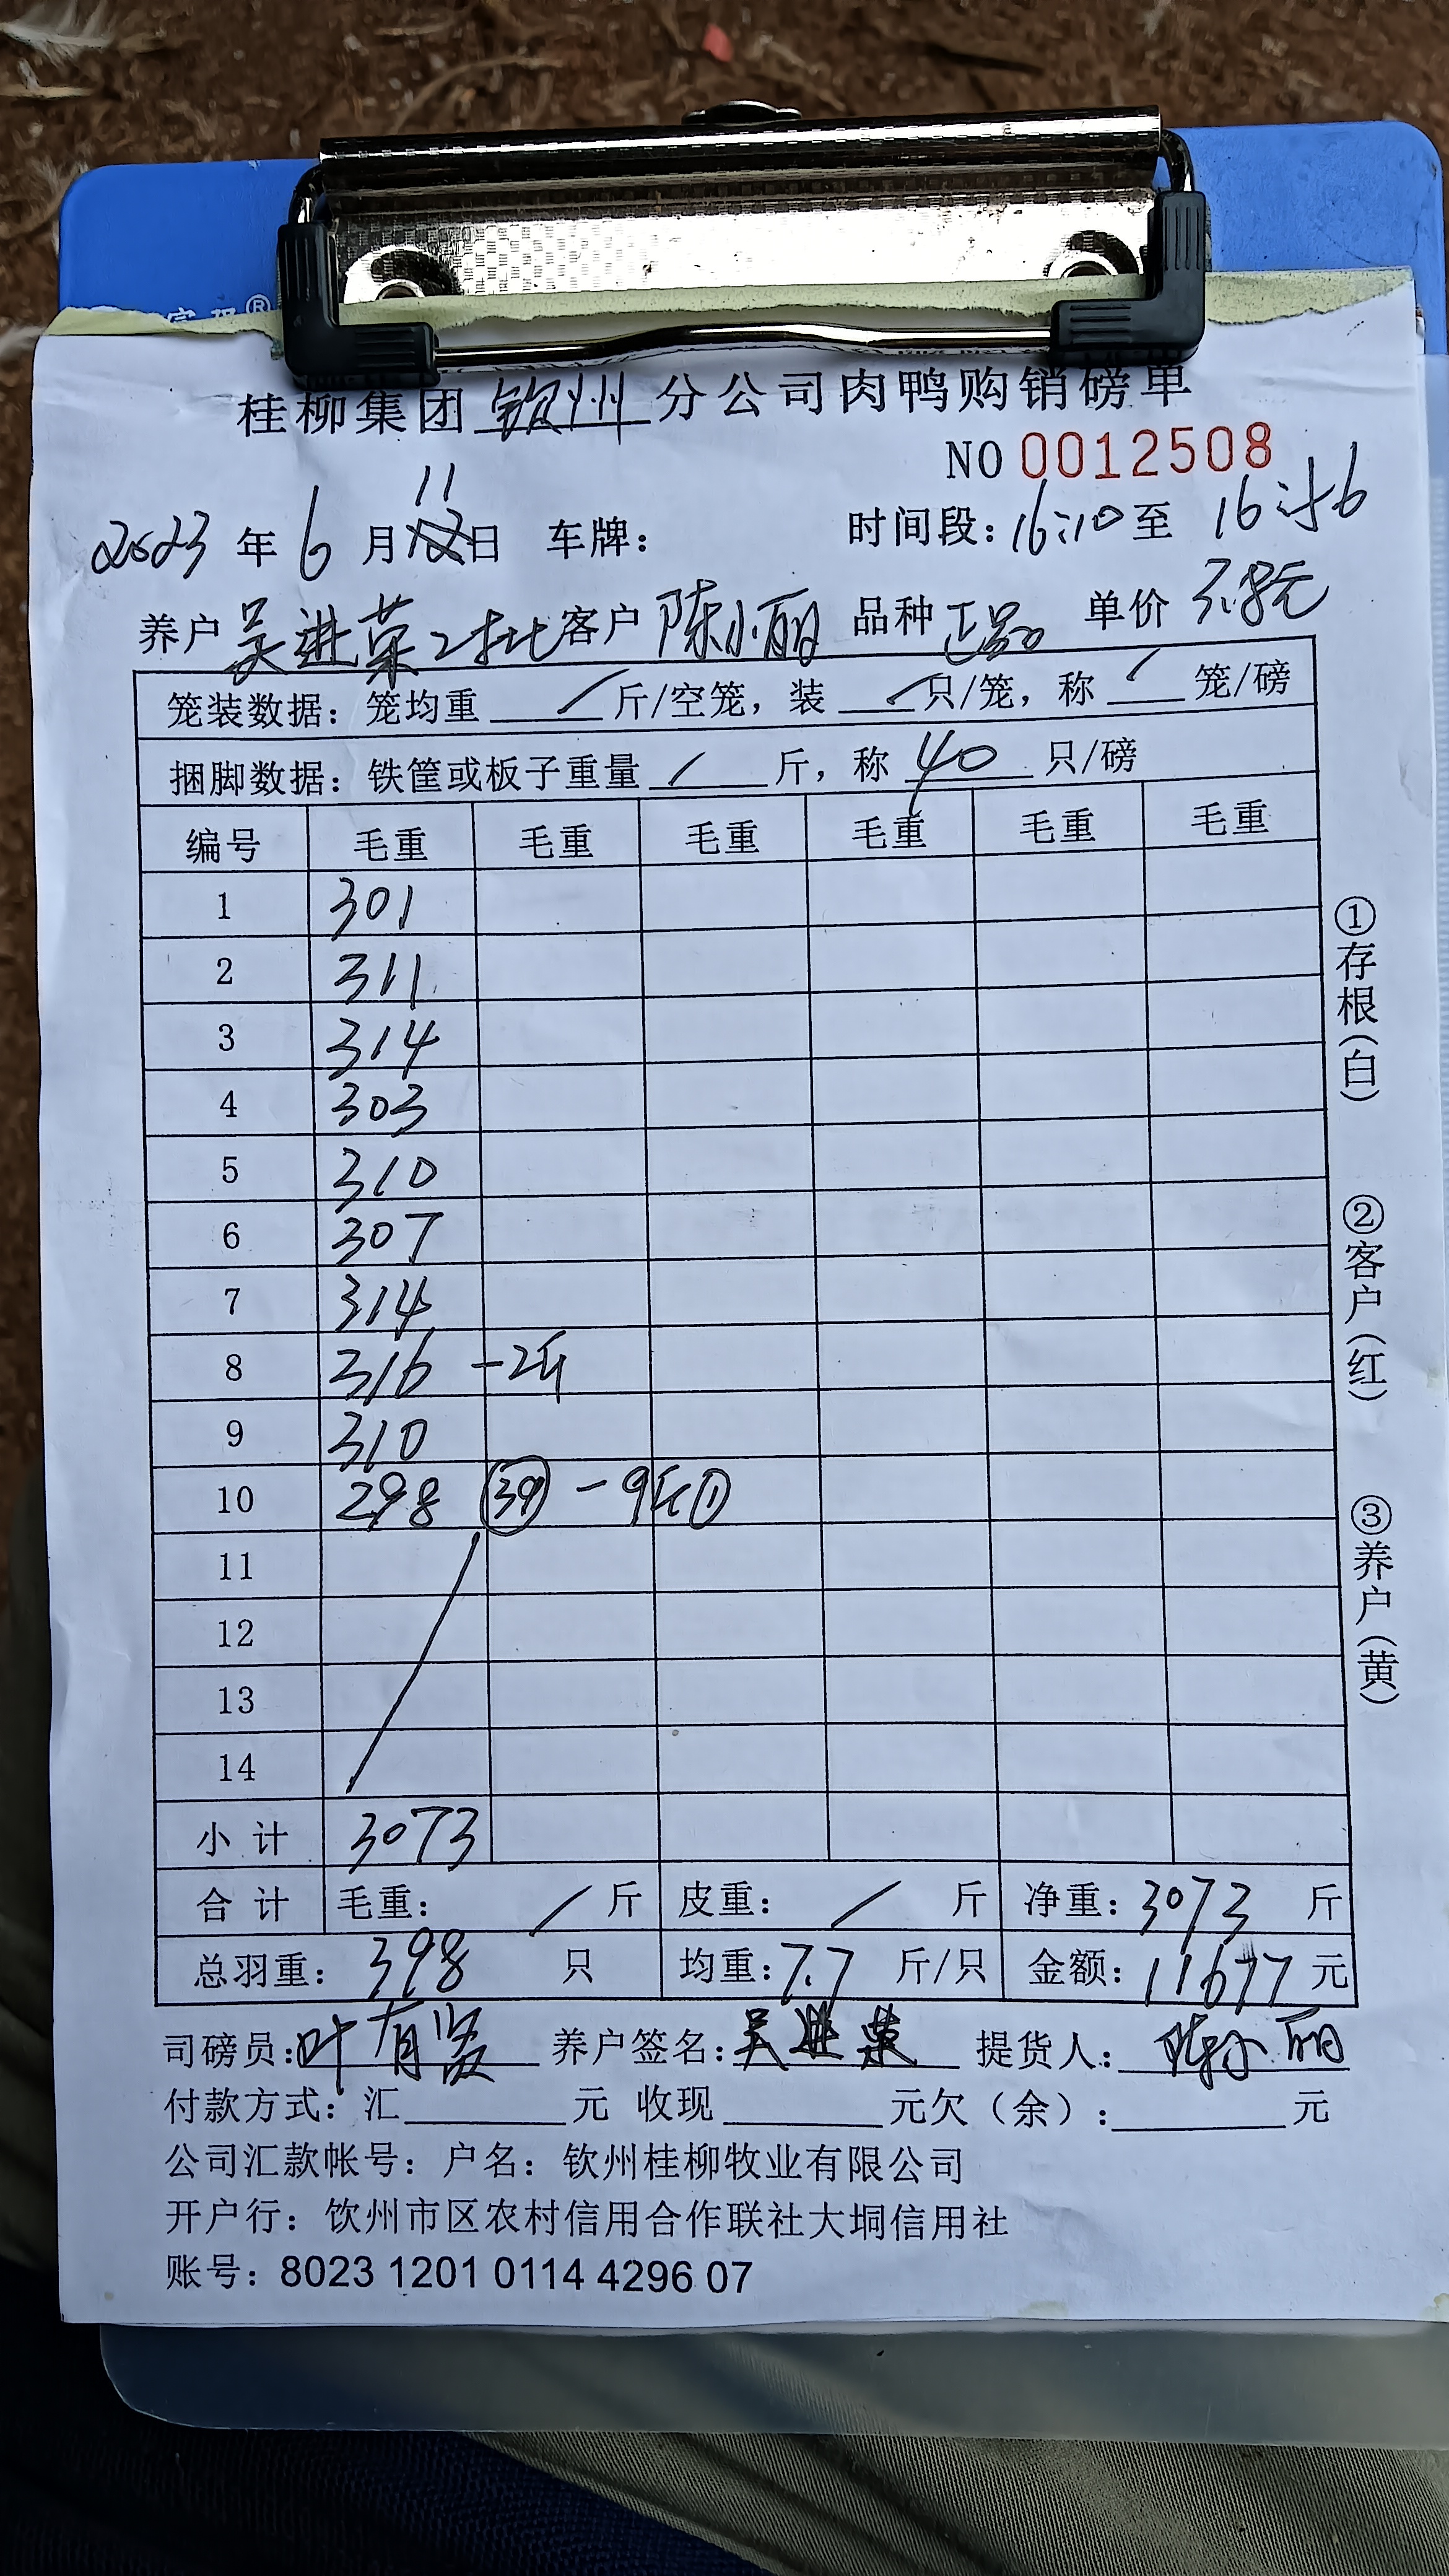 桂柳集团钦州分公司肉鸭购销磅单
NO 0012508
11
2023年6月日 车牌： 时间段：16:10至16:56
养户吴进荣2批 客户陈小丽 品种正品 单价3.8元
笼装数据：笼均重/斤/空笼，装/只/笼，称/笼/磅
捆脚数据：铁筐或板子重量/斤，称40只/磅
编号 毛重 毛重 毛重 毛重 毛重 毛重
1 301
2 311
3 314
4 303
5 310
6 307
7 314
8 316 -2斤
9 310
10 298 39 -9斤①
11
12
13
14
小计 3073
合计 毛重：/斤 皮重：/斤 净重：3073斤
总羽重：398只 均重：7.7斤/只 金额：11677元
司磅员：叶有贤 养户签名：吴进荣 提货人：陈小丽
付款方式：汇 元 收现 元欠（余）： 元
公司汇款帐号：户名：钦州桂柳牧业有限公司
开户行：钦州市区农村信用合作联社大垌信用社
账号：8023 1201 0114 4296 07
①存根（白）
②客户（红）
③养户（黄）